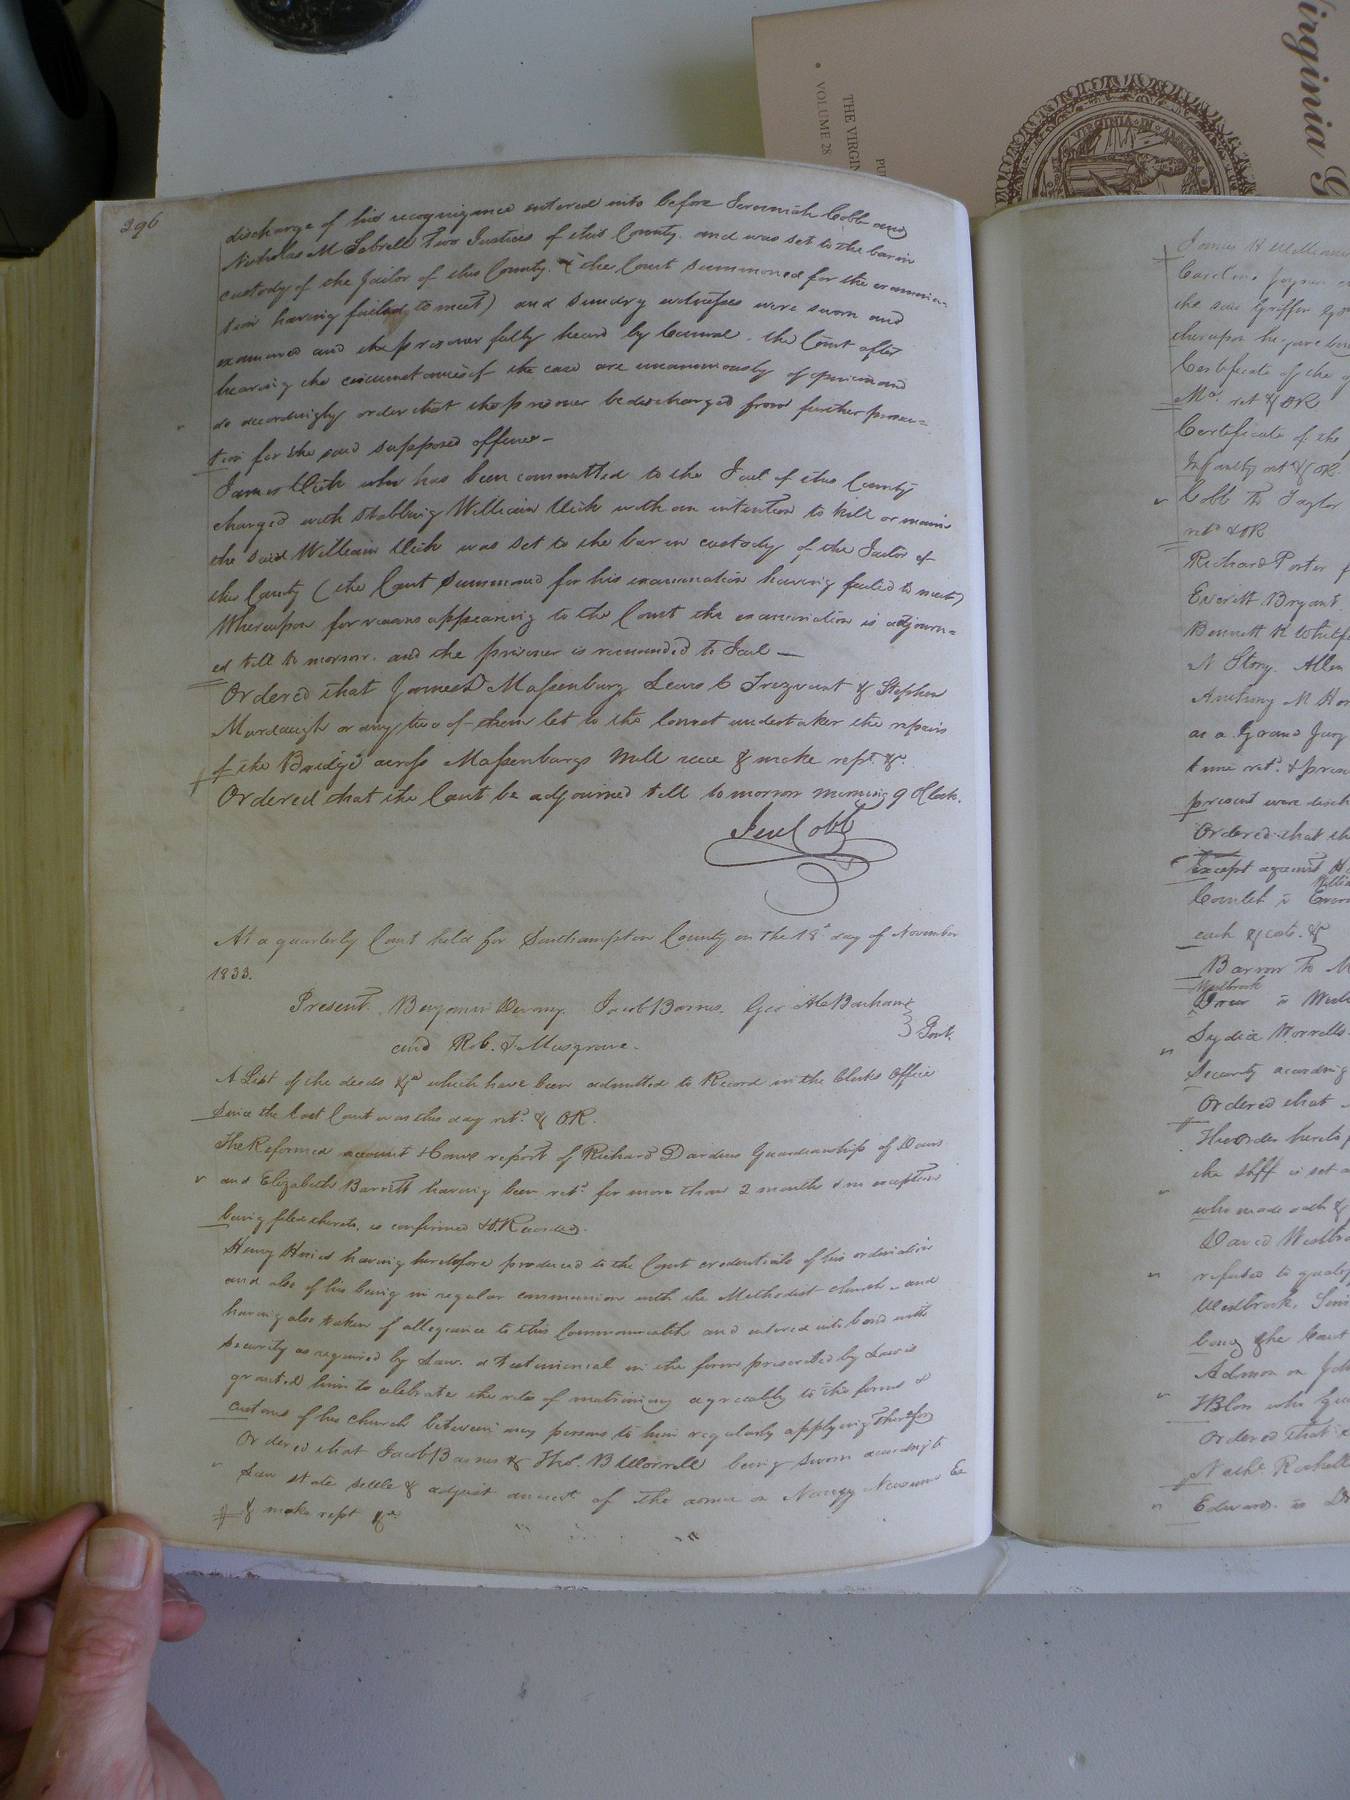 Virginia G
THE VIRGIN
PU
• VOLUME 28
VIRGINIA
396
discharge of his recognizance entered into before Jeremiah Cobb and
Nicholas M Sebrell two Justices of this County. and was set to the bar in
custody of the Jailor of this County. & the Court summoned for the examina-
tion having failed to meet) and sundry witnesses were sworn and
examined and the prisoner fully heard by Counsel. the Court after
hearing the circumstances of the case are unanimously of opinion and
do accordingly order that the prisoner be discharged from further prosecu=
tion for the said supposed offence —
James Vick who has been committed to the Jail of this County
charged with stabbing William Vick with an intention to kill or maim
the said William Vick was set to the bar in custody of the Jailor of
this County (the Court summoned for his examination having failed to meet)
Whereupon for reasons appearing to the Court the examination is adjourn=
ed till to morrow. and the prisoner is remanded to Jail —
Ordered that Massenburg Lewis C Trezvant & Stephen
Murdaugh or any two of them let to the lowest undertaker the repairs
of the Bridge across Massenburgs Mill race & make rept. &c.
Ordered that the Court be adjourned till to morrow morning 9 Oclock.
Jer Cobb
At a quarterly Court held for Southampton County on the 18th day of November
1833.
Present. Benjamin Devany. Jacob Barnes. Geo H Barham
and Rob. T Musgrave. } Gent.
A List of the deeds &c which have been admitted to Record in the Clerks Office
since the last Court was this day retd. & OR.
The Reformed account & Coms report of Richard Dardens Guardianship of
and Elizabeth Barrett having been retd. for more than 2 month & no exception
being filed thereto, is confirmed & O. Recorded.
Henry having heretofore produced to the Court credentials of his ordination
and also of his being in regular communion with the Methodist church - and
having also taken of allegiance to this Commonwealth and entered into bond with
security as required by Law. a testimonial in the form prescribed by Law is
granted him to celebrate the rites of matrimony agreeably to the forms &
customs of his church between any persons to him regularly applying therefor
Ordered that Jacob Barnes & Thos. B Worrell being sworn according to
Law state settle & adjust account of the admr on Nancy Newsums Es
& make rept &c.
James H Williams
Caroline
the said Griffin
thereupon he gave
Certificate of the
retd & OR
Certificate of the
Infantry retd & OR.
Cobb To Taylor
retd & OR
Richard Porter
Everitt Bryant.
Bennett K Whitf
N Story. Allen
Anthony M
as a Grand Jury
time retd. &
present were disch
Ordered that the
Except against
each & costs. &c
Barrow To
Westbrook
Lydia Worrells
Security according
Ordered that
The order hereto
the shff is set a
who made oath &
David Westbro
refused to qualify
Westbrook.
being the Court
Admon on Joh
who
Ordered that
Rochelle
Edwards. is